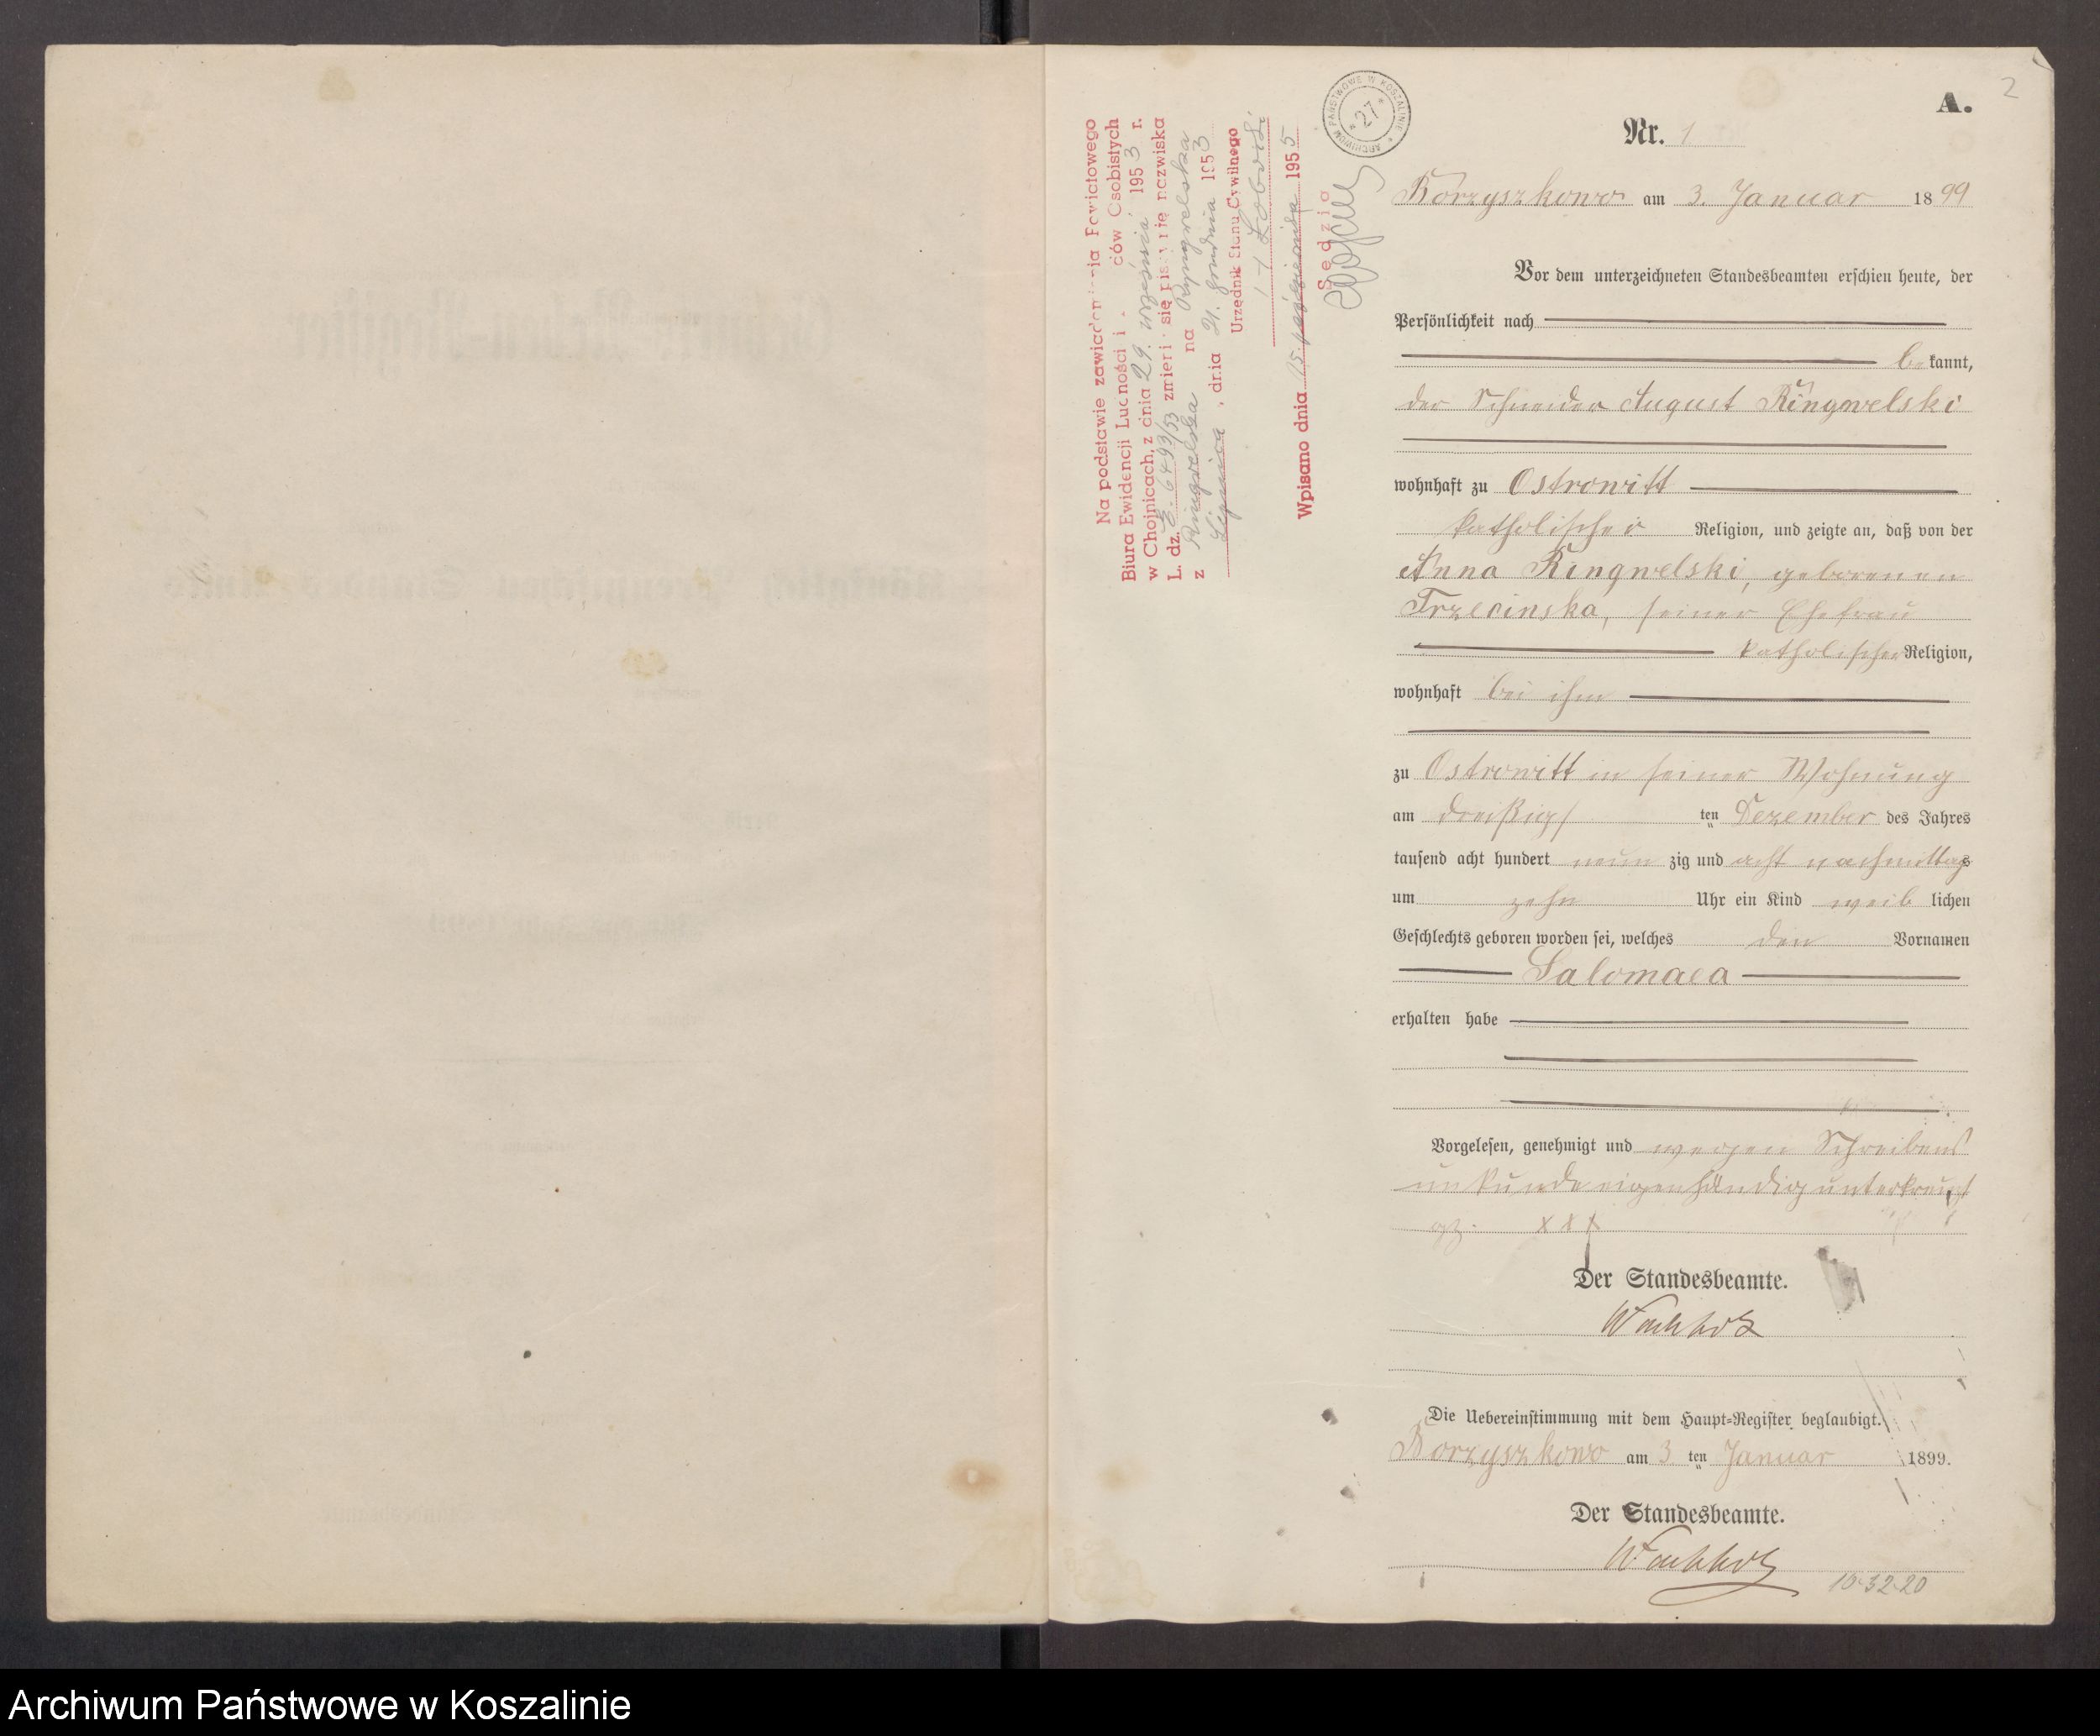 A.
2
Nr. 1
ARCHIWUM PAŃSTWOWE W KOSZALINIE
* 27 *
Borzyszkowo am 3. Januar 1899
Vor dem unterzeichneten Standesbeamten erschien heute, der
Persönlichkeit nach
bekannt,
der Schneider August Ringwelski
wohnhaft zu Ostrowitt
katholischer Religion, und zeigte an, daß von der
Anna Ringwelski, geborenen
Trzecinska, seiner Ehefrau
katholischer Religion,
wohnhaft bei ihm
zu Ostrowitt in seiner Wohnung
am dreißigs ten Dezember des Jahres
tausend acht hundert neun zig und acht nachmittags
um zehn Uhr ein Kind weib lichen
Geschlechts geboren worden sei, welches den Vornamen
Salomaea
erhalten habe
Vorgelesen, genehmigt und wegen Schreibens
unkunde eigenhändig unterkreuzt
gz. x x x
Der Standesbeamte.
Wachholz
Die Uebereinstimmung mit dem Haupt=Register beglaubigt.
Borzyszkowo am 3 ten Januar 1899.
Der Standesbeamte.
Wachholz
10-32-20
Na podstawie zawiadomienia Powiatowego
Biura Ewidencji Ludności i ów Osobistych
w Chojnicach, z dnia 29. września 1953 r.
L. dz. E. 6493/53 zmienia się pisownię nazwiska
z Ringwelska na Ryngwelska
Lipnica, dnia 21. grudnia 1953
Urzędnik Stanu Cywilnego
Wpisano dnia 15. października 1955
Sędzia
Archiwum Państwowe w Koszalinie